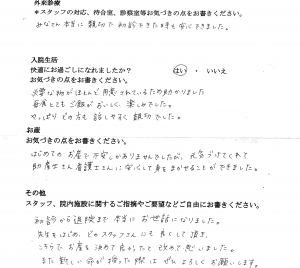 外来診療
*スタッフの対応、待合室、診察室等お気づきの点をお書きください。
みなさん本当に親切で初診できた時も安心できました。
入院生活
快適にお過ごしになれましたか？　はい・いいえ
お気づきの点をお書きください。
必要な物がほとんど用意されているため助かりました
毎食とてもご飯がおいしく楽しみでした。
やっぱりどの方も話しやすく親切でした。
お産
お気づきの点をお書きください。
はじめてのお産で不安しかありませんでしたが、元気づけてくれて
助産士さん看護士さんに安心して身をまかせることができました。
その他
スタッフ、院内施設に関するご指摘やご要望などご自由にお書きください。
初診から退院まで本当にお世話になりました。
先生をはじめ、どのスタッフさんにも良くして頂き、
こちらでお産を決めて良かったと改めて思いました。
また新しい命が授った際はぜひよろしくお願いします。